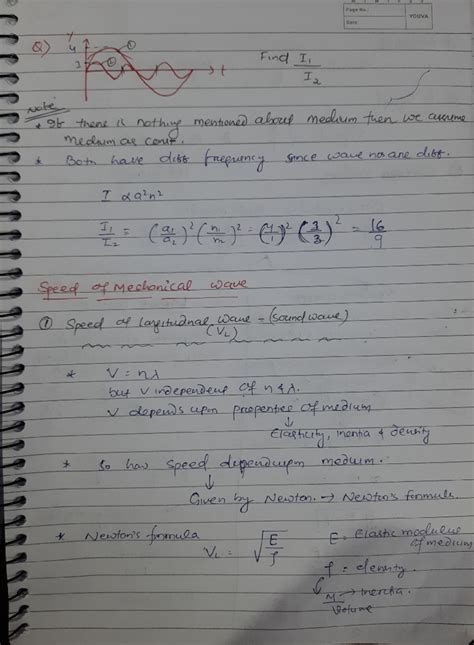 Page No.:
Date:
YOUVA
Q) y
4
3
t
Find I₁/I₂
Note
* If there is nothing mentioned about medium then we assume
medium as const.
* Both have diff frequency since wave no are diff.
I ∝ a²n²
I₁/I₂ = (a₁/a₂)² (n₁/n₂)² =
= 16/9
Speed of Mechanical wave
① Speed of longitudinal wave - (sound wave)
(VL)
* V = nλ
but V independent of n & λ.
V depends upon properties of medium
↓
Elasticity, inertia & density
* So has speed depend upon medium.
↓
Given by Newton. → Newton's formula
* Newton's formula
VL = √(E/ρ)
E = Elastic modulus
of medium
ρ = density.
↓
M → inertia.
Volume